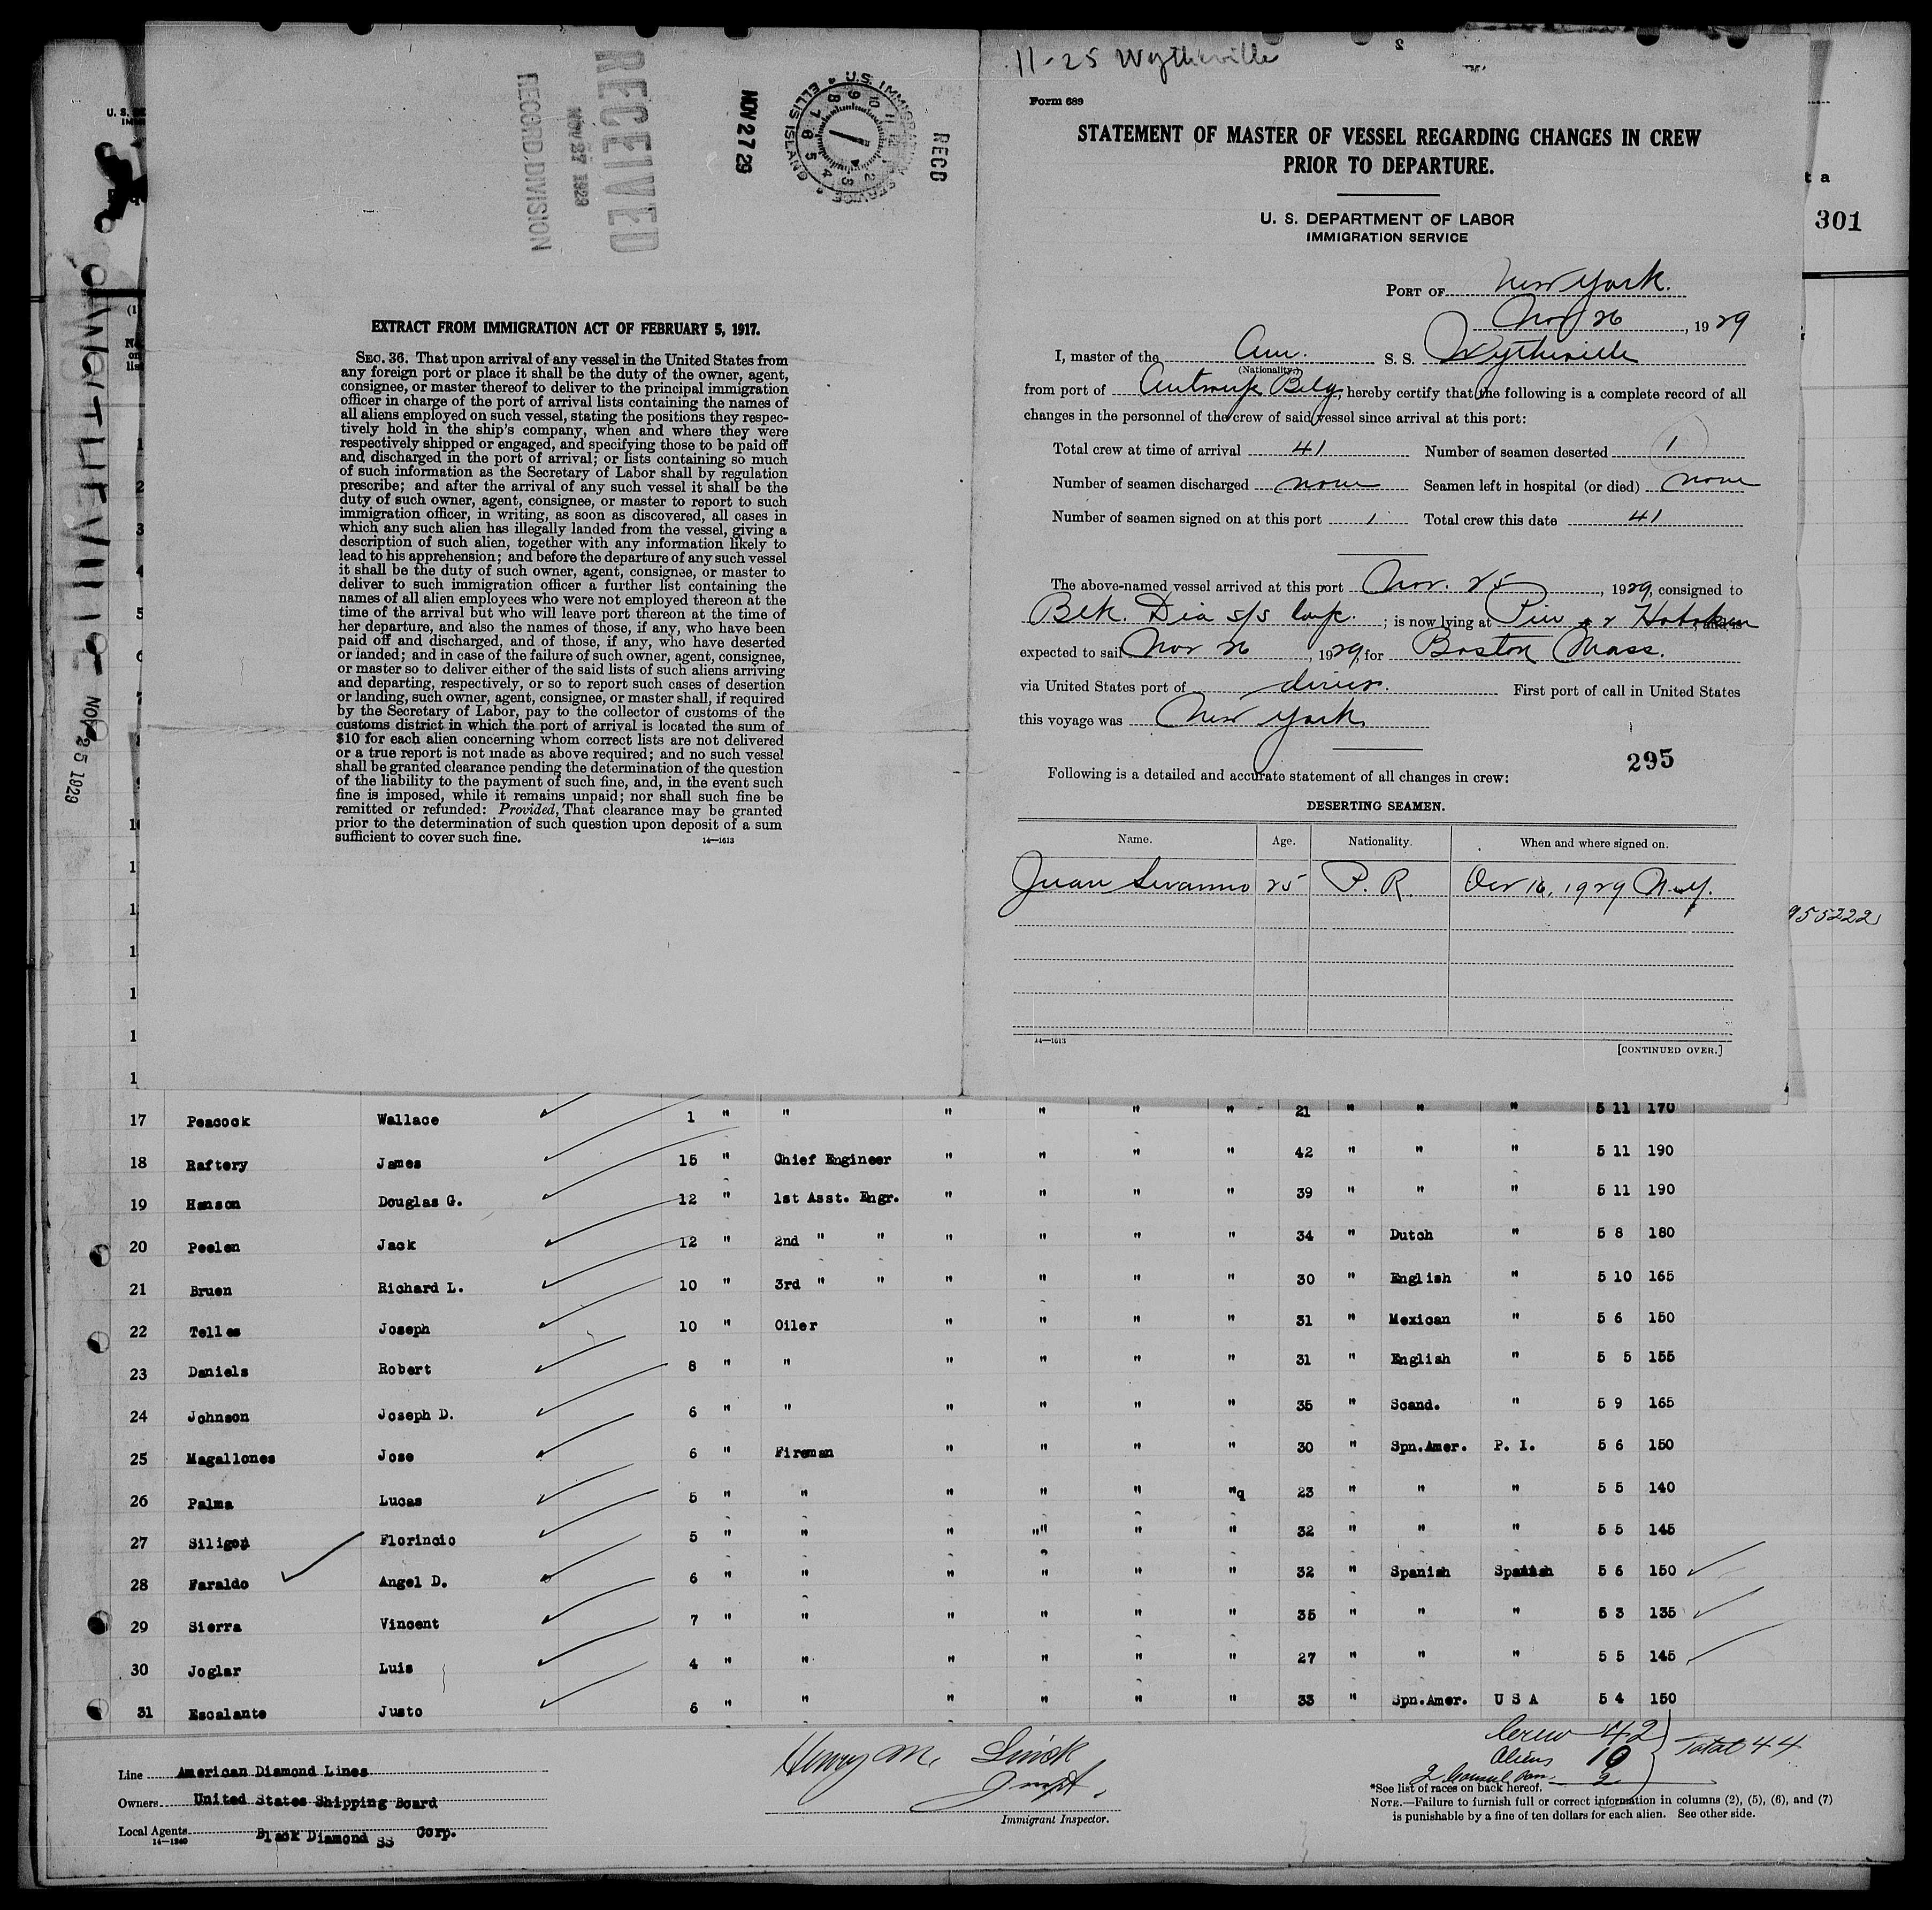 RECEIVED
NOV 27 1929
RECORD. DIVISION
NOV 27 29
U.S. IMMIGRATION SERVICE
ELLIS ISLAND
RECD
EXTRACT FROM IMMIGRATION ACT OF FEBRUARY 5, 1917.
SEC. 36. That upon arrival of any vessel in the United States from
any foreign port or place it shall be the duty of the owner, agent,
consignee, or master thereof to deliver to the principal immigration
officer in charge of the port of arrival lists containing the names of
all aliens employed on such vessel, stating the positions they respec-
tively hold in the ship's company, when and where they were
respectively shipped or engaged, and specifying those to be paid off
and discharged in the port of arrival; or lists containing so much
of such information as the Secretary of Labor shall by regulation
prescribe; and after the arrival of any such vessel it shall be the
duty of such owner, agent, consignee, or master to report to such
immigration officer, in writing, as soon as discovered, all cases in
which any such alien has illegally landed from the vessel, giving a
description of such alien, together with any information likely to
lead to his apprehension; and before the departure of any such vessel
it shall be the duty of such owner, agent, consignee, or master to
deliver to such immigration officer a further list containing the
names of all alien employees who were not employed thereon at the
time of the arrival but who will leave port thereon at the time of
her departure, and also the names of those, if any, who have been
paid off and discharged, and of those, if any, who have deserted
or landed; and in case of the failure of such owner, agent, consignee,
or master so to deliver either of the said lists of such aliens arriving
and departing, respectively, or so to report such cases of desertion
or landing, such owner, agent, consignee, or master shall, if required
by the Secretary of Labor, pay to the collector of customs of the
customs district in which the port of arrival is located the sum of
$10 for each alien concerning whom correct lists are not delivered
or a true report is not made as above required; and no such vessel
shall be granted clearance pending the determination of the question
of the liability to the payment of such fine, and, in the event such
fine is imposed, while it remains unpaid; nor shall such fine be
remitted or refunded: Provided, That clearance may be granted
prior to the determination of such question upon deposit of a sum
sufficient to cover such fine.
14—1613
11-25 Wytheville
Form 689
STATEMENT OF MASTER OF VESSEL REGARDING CHANGES IN CREW
PRIOR TO DEPARTURE.
U. S. DEPARTMENT OF LABOR
IMMIGRATION SERVICE
PORT OF New York.
Nov 26, 1929
I, master of the Am. S. S. Wytheville
(Nationality.)
from port of Antwerp Belg, hereby certify that the following is a complete record of all
changes in the personnel of the crew of said vessel since arrival at this port:
Total crew at time of arrival 41 Number of seamen deserted 1
Number of seamen discharged none Seamen left in hospital (or died) none
Number of seamen signed on at this port 1 Total crew this date 41
The above-named vessel arrived at this port Nov. 25, 1929, consigned to
Blk. Dia S/S Corp.; is now lying at Pier Hoboken
expected to sail Nov 26, 1929, for Boston Mass.
via United States port of First port of call in United States
this voyage was New York
295
Following is a detailed and accurate statement of all changes in crew:
DESERTING SEAMEN.
Name. Age. Nationality. When and where signed on.
Juan 25 P. R. Oct 16, 1929 N.Y.
14—1613
[CONTINUED OVER.]
301
955222
WYTHEVILLE NOV 25 1929
17 Peacock Wallace 1 " " " " " " 21 " " " 5 11 170
18 Raftery James 15 " Chief Engineer " " " " 42 " " " 5 11 190
19 Hanson Douglas G. 12 " 1st Asst. Engr. " " " " 39 " " " 5 11 190
20 Peelen Jack 12 " 2nd " " " " " " 34 " Dutch " 5 8 180
21 Bruen Richard L. 10 " 3rd " " " " " " 30 " English " 5 10 165
22 Telles Joseph 10 " Oiler " " " " 31 " Mexican " 5 6 150
23 Daniels Robert 8 " " " " " " 31 " English " 5 5 155
24 Johnson Joseph D. 6 " " " " " " 35 " Scand. " 5 9 165
25 Magallones Jose 6 " Fireman " " " " 30 " Spn.Amer. P. I. 5 6 150
26 Palma Lucas 5 " " " " " "q 23 " " " 5 5 140
27 Siligon Florincio 5 " " " "" " " 32 " " " 5 5 145
28 Faraldo Angel D. 6 " " " " " " 32 " Spanish Spanish 5 6 150
29 Sierra Vincent 7 " " " " " " 35 " " " 5 3 135
30 Joglar Luis 4 " " " " " " 27 " " " 5 5 145
31 Escalante Justo 6 " " " " " " 33 " Spn.Amer. U S A 5 4 150
Crew 42
Aliens 10
2
Total 44
Line American Diamond Lines
Owners United States Shipping Board
Local Agents Black Diamond SS Corp.
14—1240
Henry M.
Immigrant Inspector.
*See list of races on back hereof.
NOTE.—Failure to furnish full or correct information in columns (2), (5), (6), and (7)
is punishable by a fine of ten dollars for each alien. See other side.